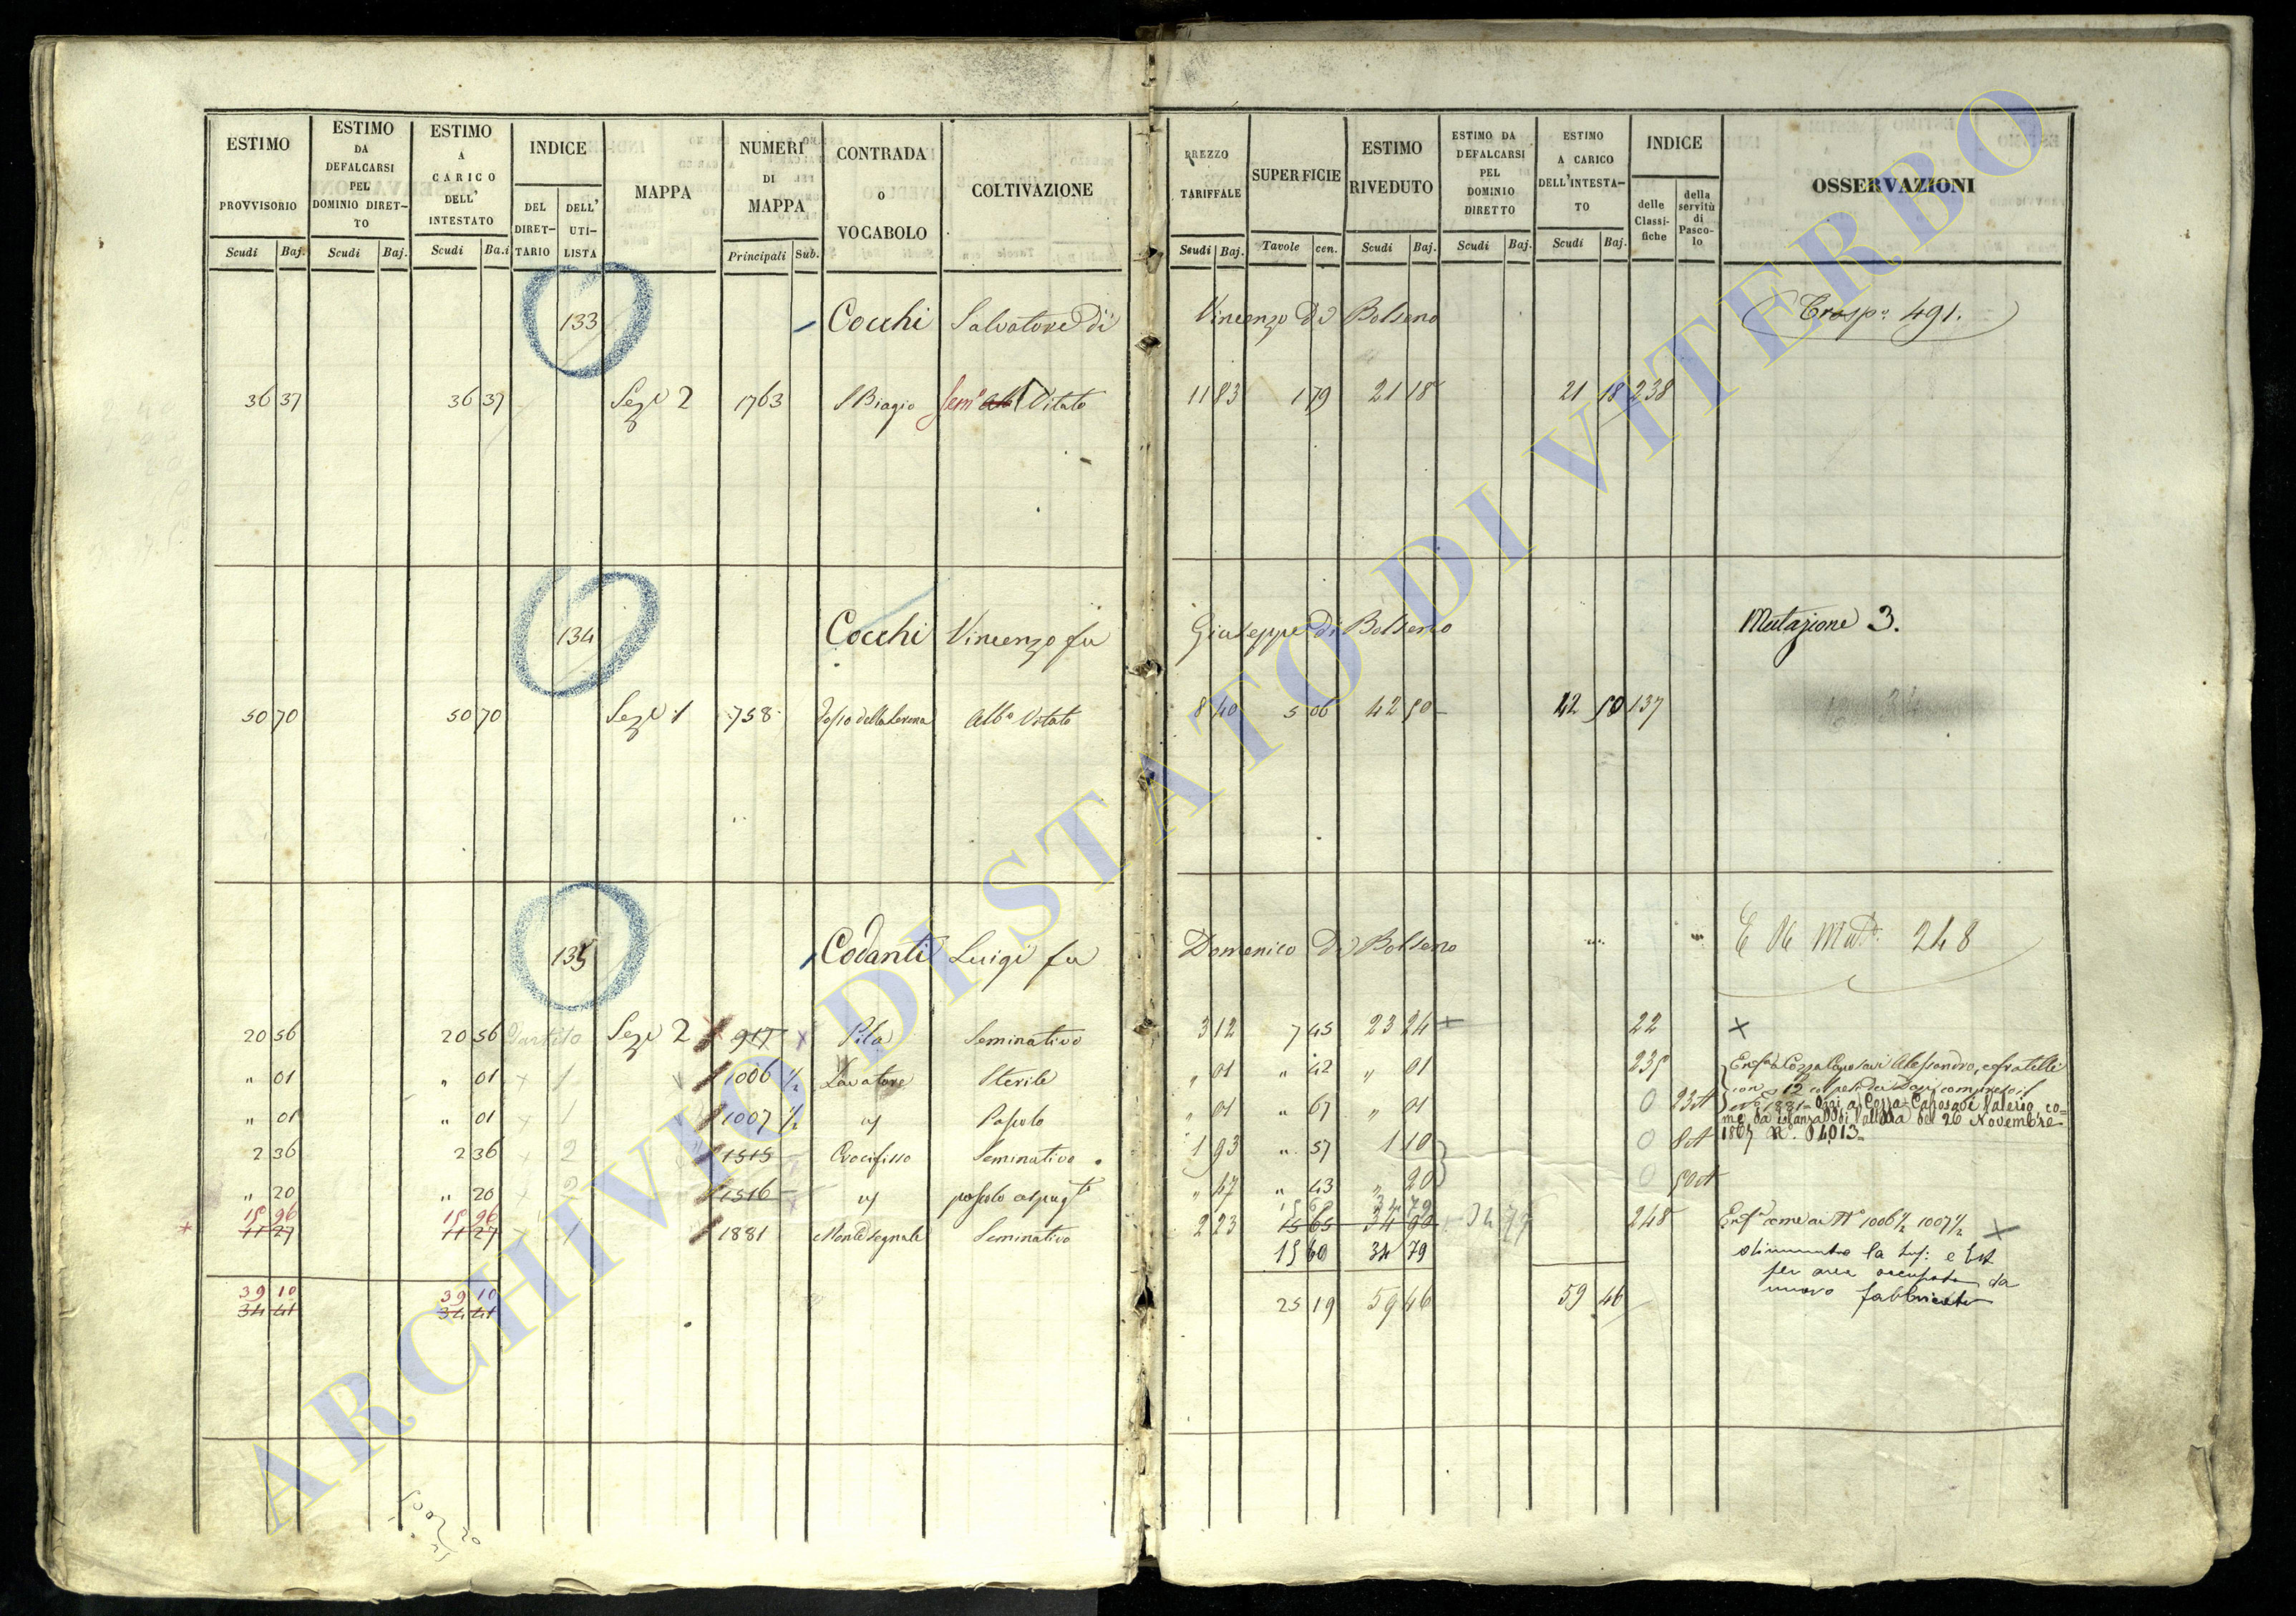 ESTIMO PROVVISORIO Scudi Baj.
ESTIMO DA DEFALCARSI PEL DOMINIO DIRET-TO Scudi Baj.
ESTIMO A CARICO DELL' INTESTATO Scudi Ba.i
INDICE DEL DIRET-TARIO DELL' UTI-LISTA
MAPPA
NUMERI DI MAPPA Principali Sub.
CONTRADA o VOCABOLO
COLTIVAZIONE
PREZZO TARIFFALE Scudi Baj.
SUPERFICIE Tavole cen.
ESTIMO RIVEDUTO Scudi Baj.
ESTIMO DA DEFALCARSI PEL DOMINIO DIRETTO Scudi Baj.
ESTIMO A CARICO DELL'INTESTA-TO Scudi Baj.
INDICE delle Classi-fiche della servitù di Pasco-lo
OSSERVAZIONI
133 Cocchi Salvatore di Vincenzo di Bolseno Trasp. 491.
36 37 36 37 Sez. 2 1763 S Biagio Sem. Vitato 11 83 1 79 21 18 21 18 238
134 Cocchi Vincenzo fu Giuseppe di Bolseno Mutazione 3.
50 70 50 70 Sez. 1 758 Alb. Vitato 8 40 5 06 42 50 42 50 137
135 Codanti Luigi fu Domenico di Bolseno 248
20 56 20 56 Sez. 2 917 Pila Seminativo 3 12 7 45 23 24 22 ×
" 01 " 01 1 1006 1/2 Lavatore Sterile " 01 " 42 " 01 235 Alessandro, e fratelli
" 01 " 01 1 1007 1/2 Pascolo " 01 " 67 " 01 0 23A
n. 1881 Oggi a Cozza Caposavi Valerio, co-
me da istanza del 26 Novembre
2 36 2 36 2 1515 Crocifisso Seminativo 1 93 " 57 1 10 0 8A 1867 N. 04013
" 20 " 20 2 1516 pascolo " 47 " 43 " 20 0 50A
15 96 15 96 15 60 34 79
11 27 11 27 1 1881 Monte Segnale Seminativo 2 23 15 65 34 90 34 79 248 come ai N. 1006 1/2 1007 1/2 ×
15 60 34 79 la sup: e Est
per area occupata da
nuovo fabbricato
39 10 39 10
34 41 34 41 25 19 59 46 59 46
ARCHIVIO DI STATO DI VITERBO